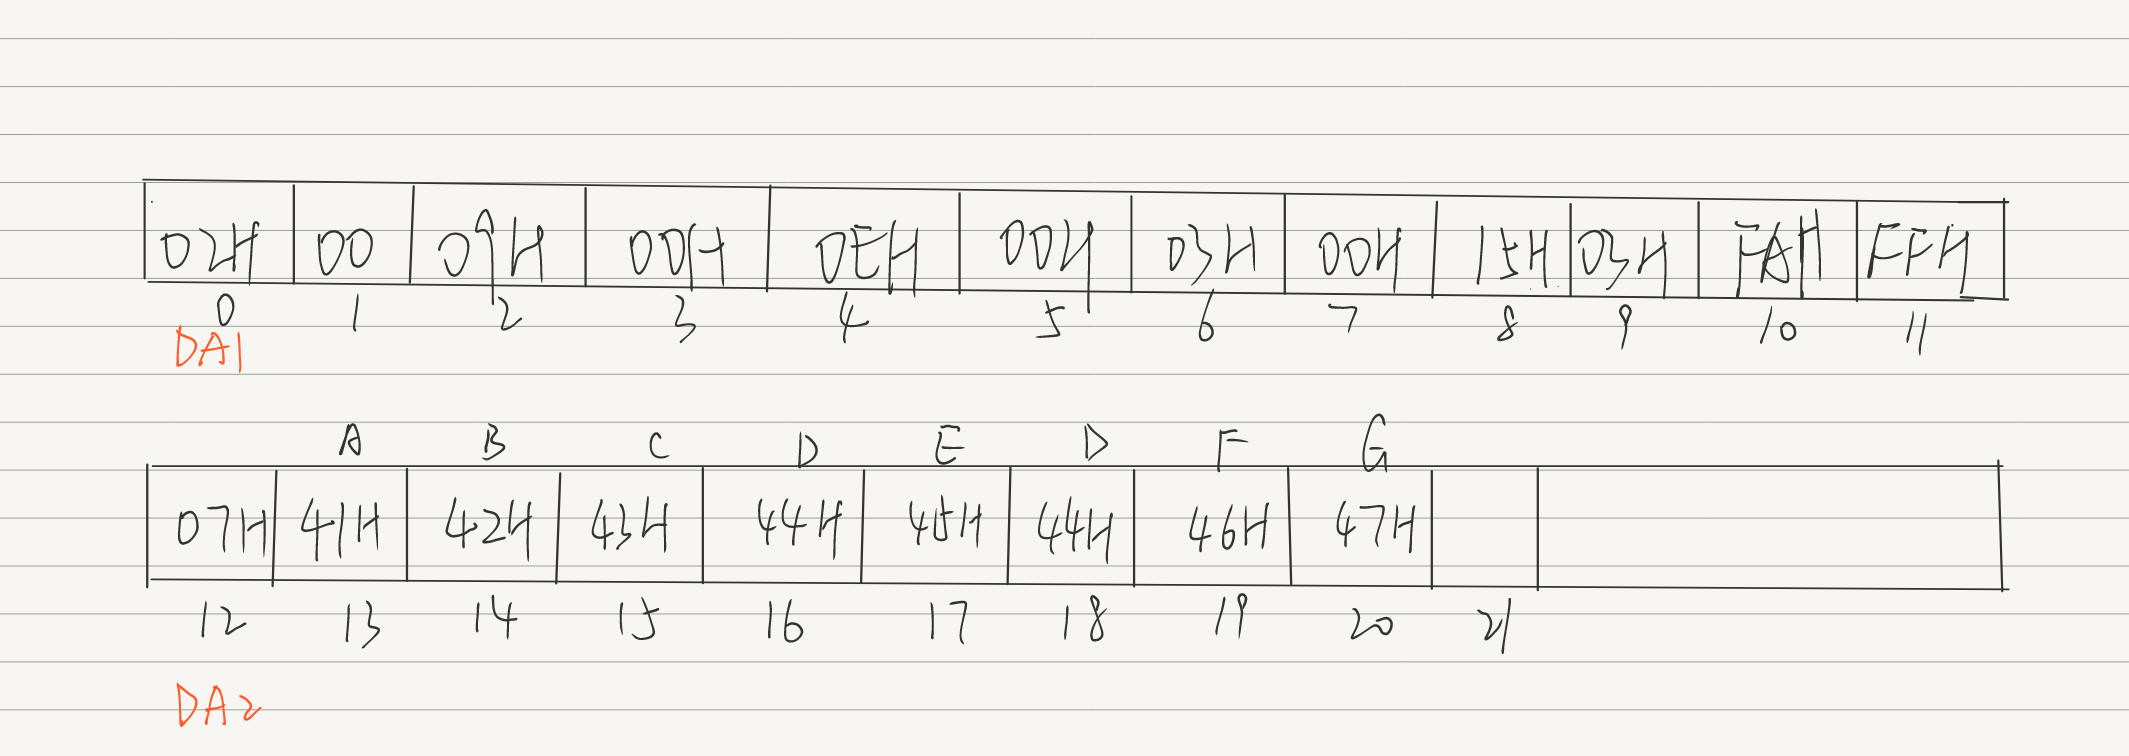 02H 00 09H 00H 0EH 00H 03H 00H 15H 03H FAH FFH
0 1 2 3 4 5 6 7 8 9 10 11
DA1
A B C D E D F G
07H 41H 42H 43H 44H 45H 44H 46H 47H
12 13 14 15 16 17 18 19 20 21
DA2